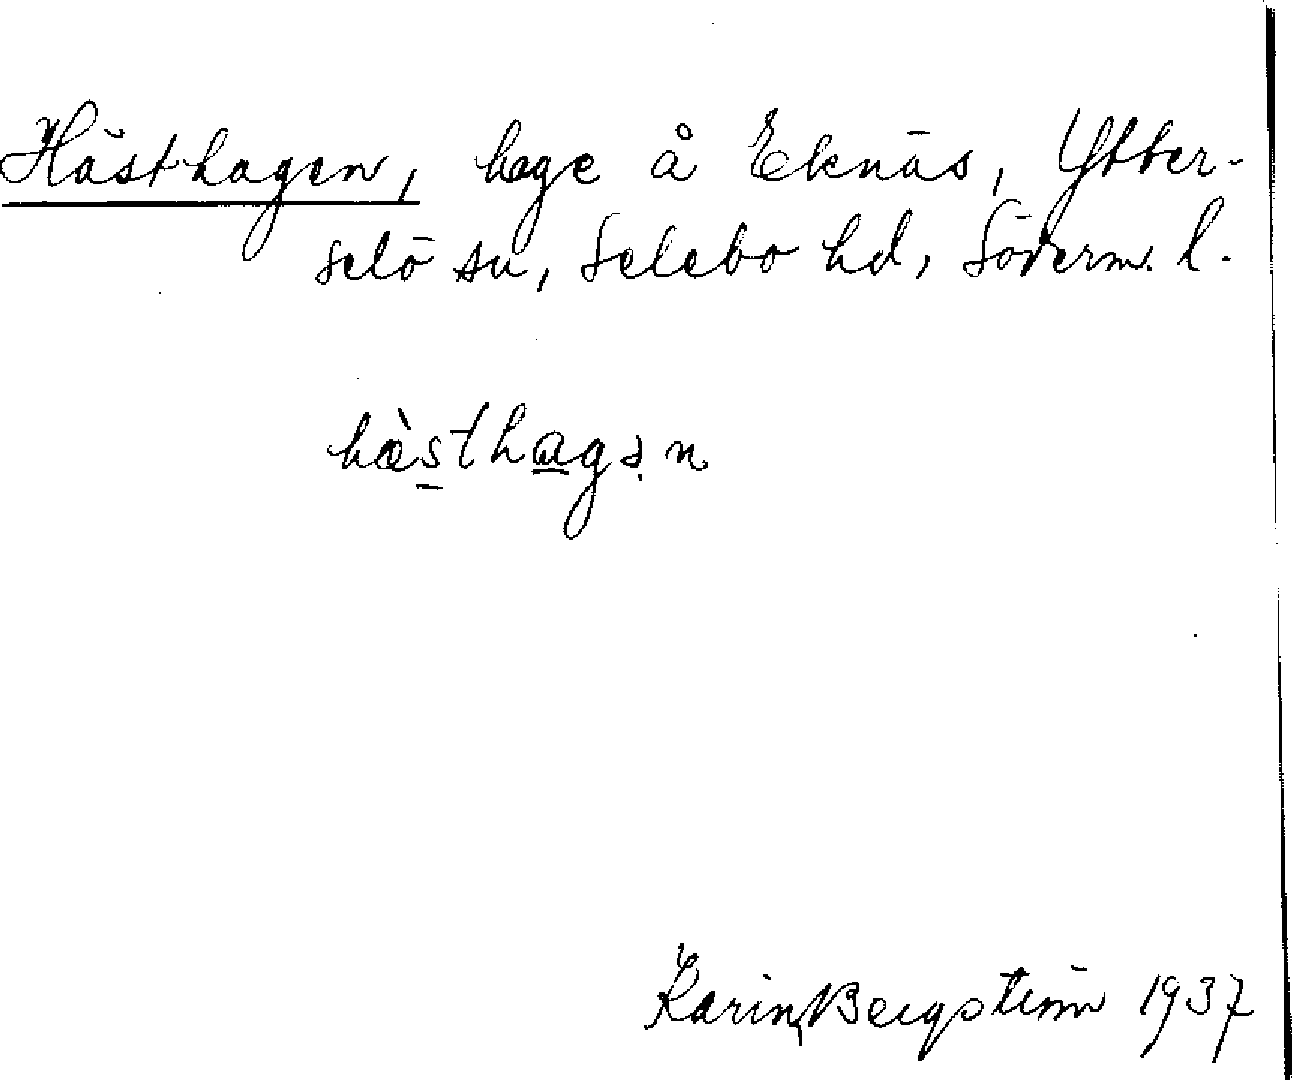 Hästhagen, hage å Eknäs, Ytter-
selö sn, Selebo hd, Söderm. l.
hæ̀sthagən
Karin Bergström 1937